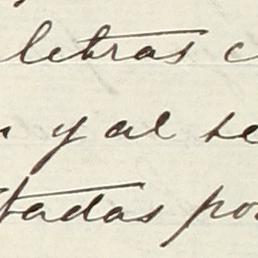 letras
y al se
tadas po